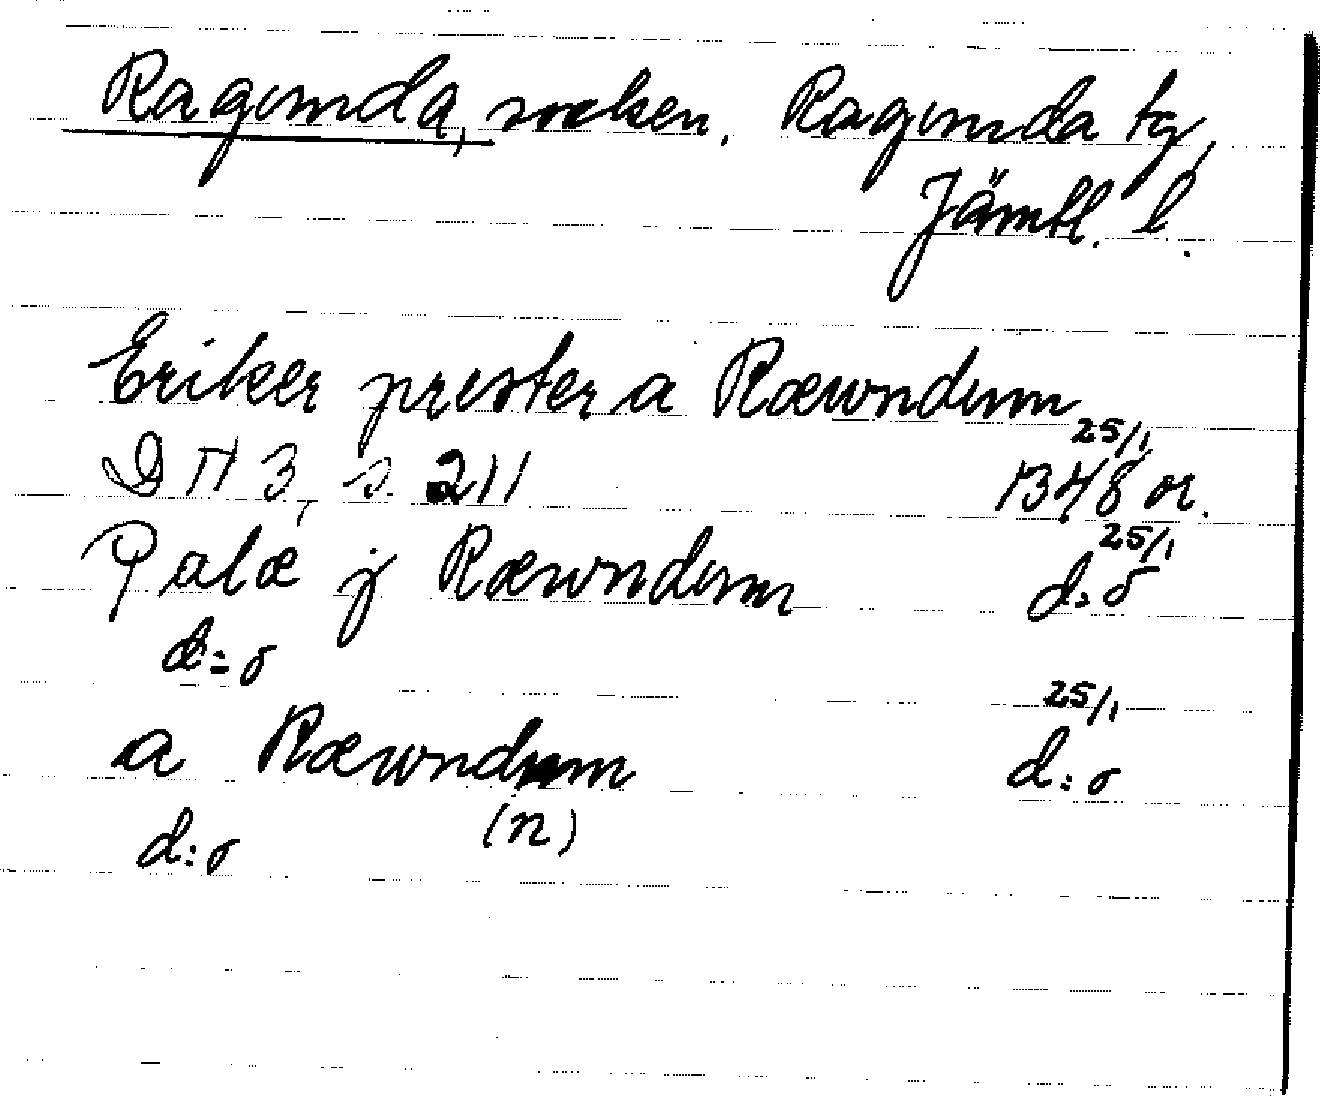 Ragunda, socken. Ragunda tg,
Jämtl. l.
Eriker prester a Ræwndum 25/1
DN 3, s. 211 1348 or.
Palæ j Ræwndum 25/1 d:o
d:o
a Ræwndum 25/1 d:o
d:o (n)